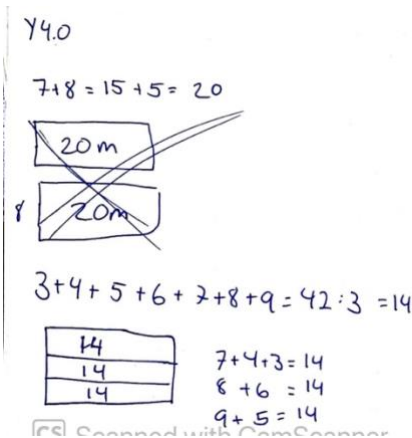 Y4.0
7+8=15+5=20
20m
8 20m
3+4+5+6+7+8+9=42:3=14
14
14
14
7+4+3=14
8+6=14
9+5=14
CS Scanned with CamScanner